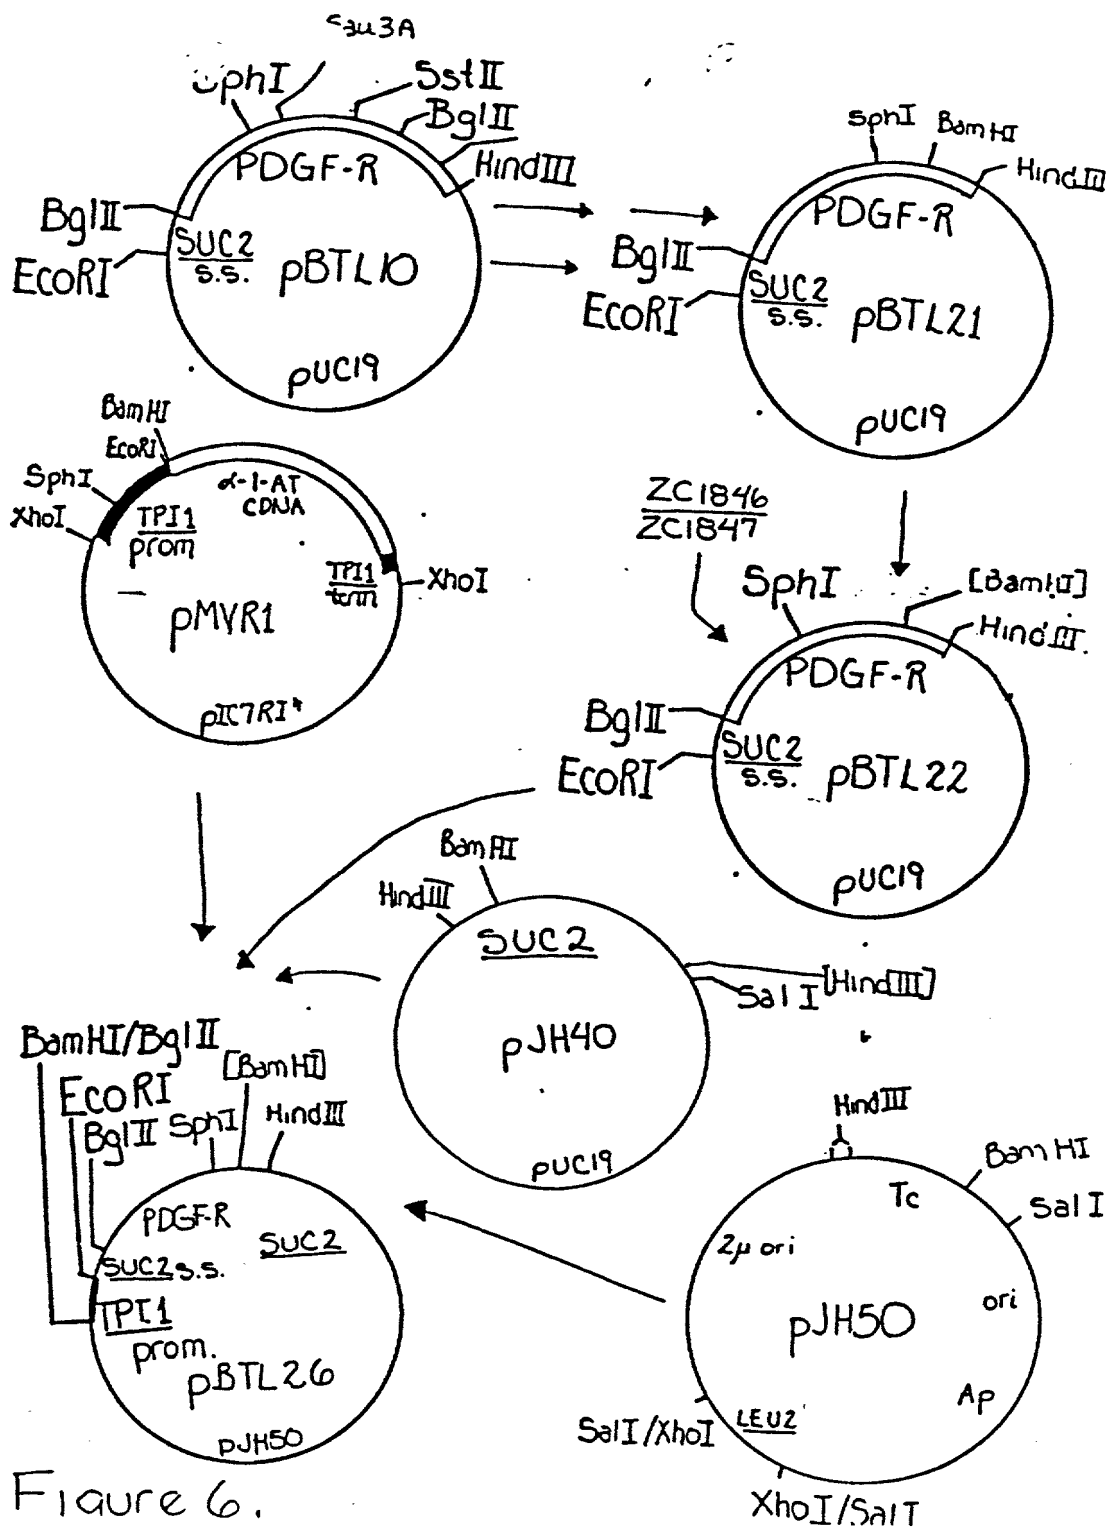 Sau3A
SphI
SstII
BglII
HindIII
PDGF-R
BglII
EcoRI
SUC2
s.s.
pBTL10
pUC19
SphI
BamHI
HindIII
PDGF-R
BglII
EcoRI
SUC2
s.s.
pBTL21
pUC19
BamHI
EcoRI
SphI
XhoI
α-1-AT
cDNA
TPI1
prom
TPI1
term
XhoI
pMVR1
pIC7RI*
ZC1846
ZC1847
SphI
[BamHI]
HindIII
PDGF-R
BglII
EcoRI
SUC2
s.s.
pBTL22
pUC19
BamHI
HindIII
SUC2
[HindIII]
SalI
pJH40
pUC19
BamHI/BglII
EcoRI
BglII
SphI
[BamHI]
HindIII
PDGF-R
SUC2
SUC2 s.s.
TPI1
prom.
pBTL26
pJH50
HindIII
BamHI
SalI
Tc
2μ ori
ori
pJH50
Ap
LEU2
SalI/XhoI
XhoI/SalI
Figure 6.